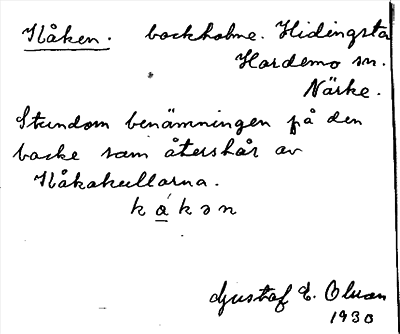 Kåken. backholme. Hidingsta
Hardemo sn.
Närke.
Stundom benämningen på den
backe som återstår av
Kåkakullarna.
kåkən
Gustaf E. Olsson
1930